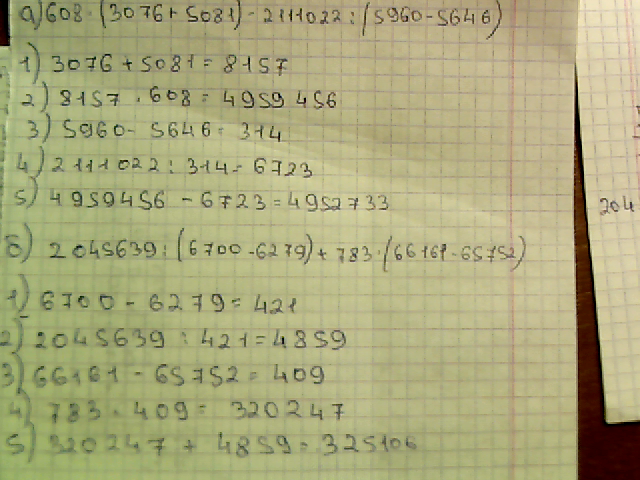 а) 608 · (3076 + 5081) - 2111022 : (5960 - 5646)
1) 3076 + 5081 = 8157
2) 8157 · 608 = 4959 456
3) 5960 - 5646 = 314
4) 2111022 : 314 = 6723
5) 4959456 - 6723 = 4952733
204
б) 2045639 : (6700 - 6279) + 783 · (66161 - 65752)
1) 6700 - 6279 = 421
2) 2045639 : 421 = 4859
3) 66161 - 65752 = 409
4) 783 · 409 = 320247
5) 320247 + 4859 = 325106